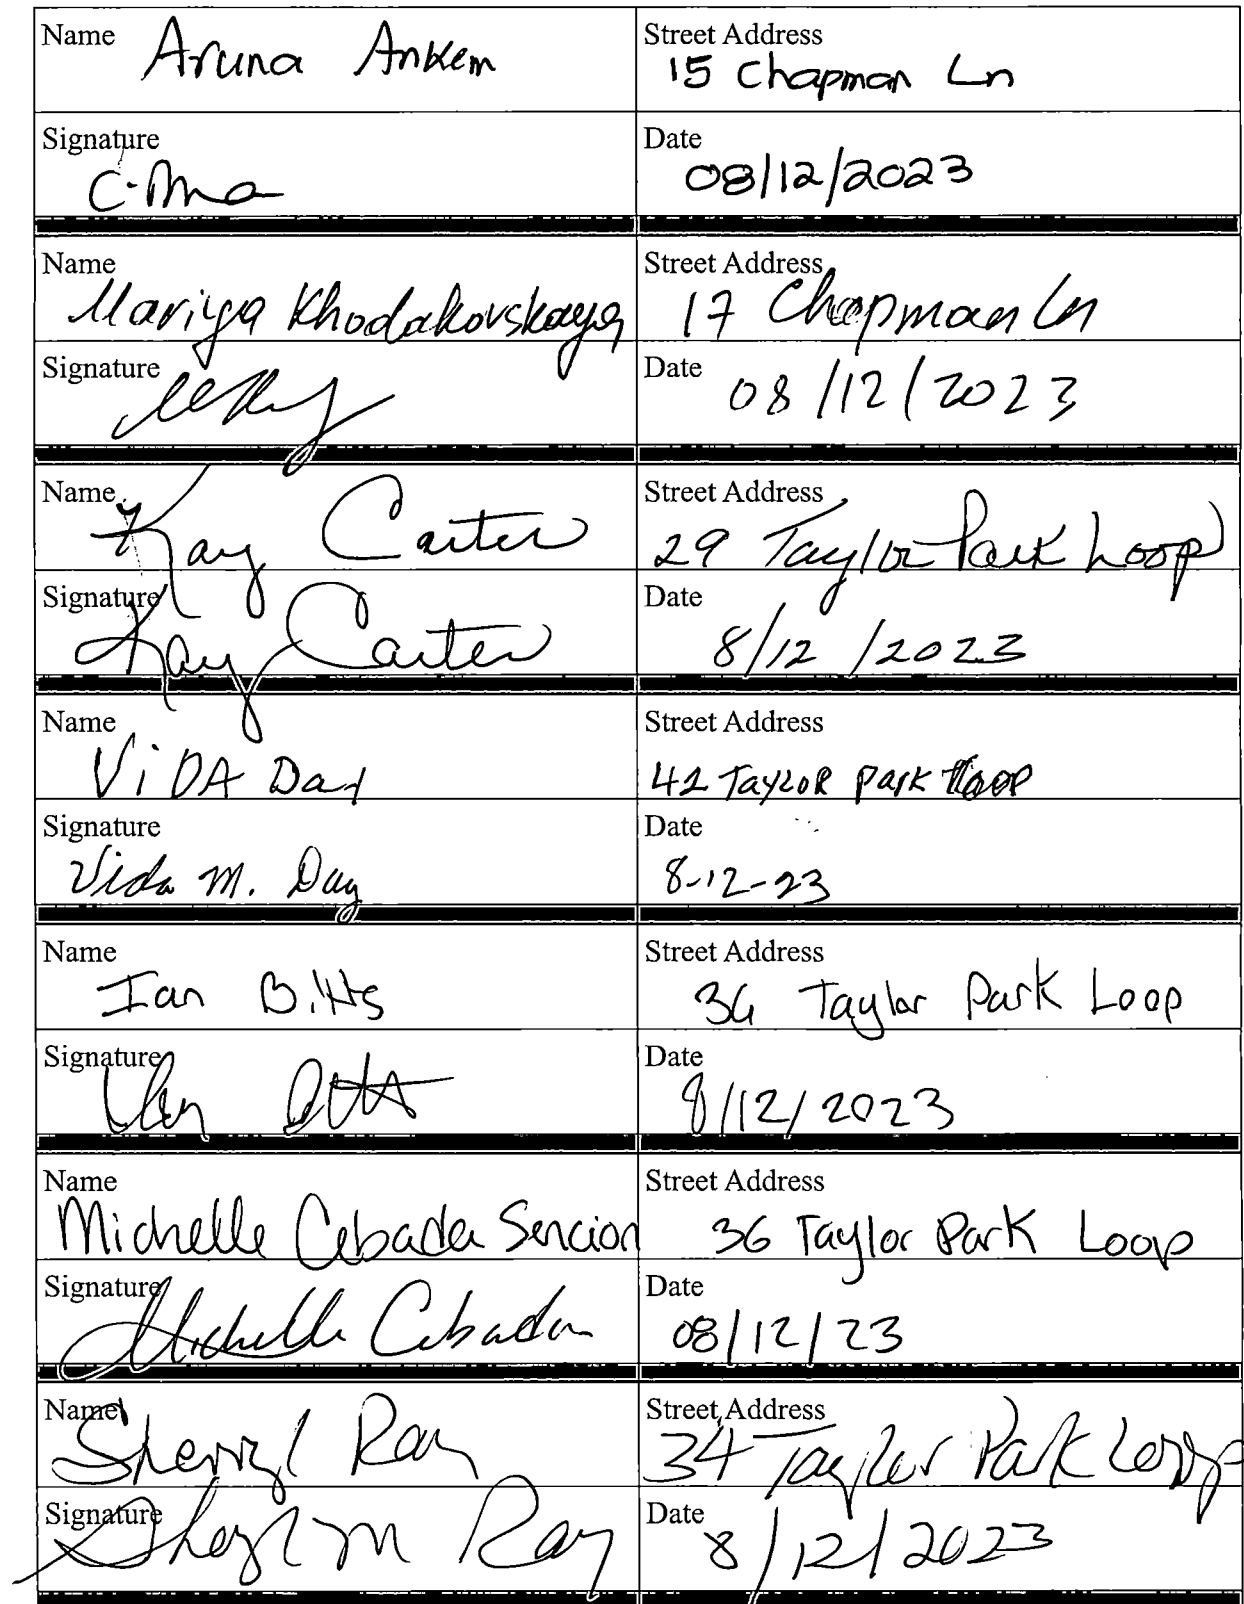 Name Aruna Ankem Street Address 15 Chapman Ln
Signature Date 08/12/2023
Name Mariya Khodakovskaya Street Address 17 Chapman Ln
Signature Date 08/12/2023
Name Kay Carter Street Address 29 Taylor Park Loop
Signature Kay Carter Date 8/12/2023
Name ViDA Day Street Address 42 Taylor park Loop
Signature Vida M. Day Date 8-12-23
Name Ian Bitts Street Address 36 Taylor Park Loop
Signature Date 8/12/2023
Name Michelle Cebada Sencion Street Address 36 Taylor Park Loop
Signature Michelle Cebada Date 08/12/23
Name Sherryl Ray Street Address 34 Taylor Park Loop
Signature Ray Date 8/12/2023